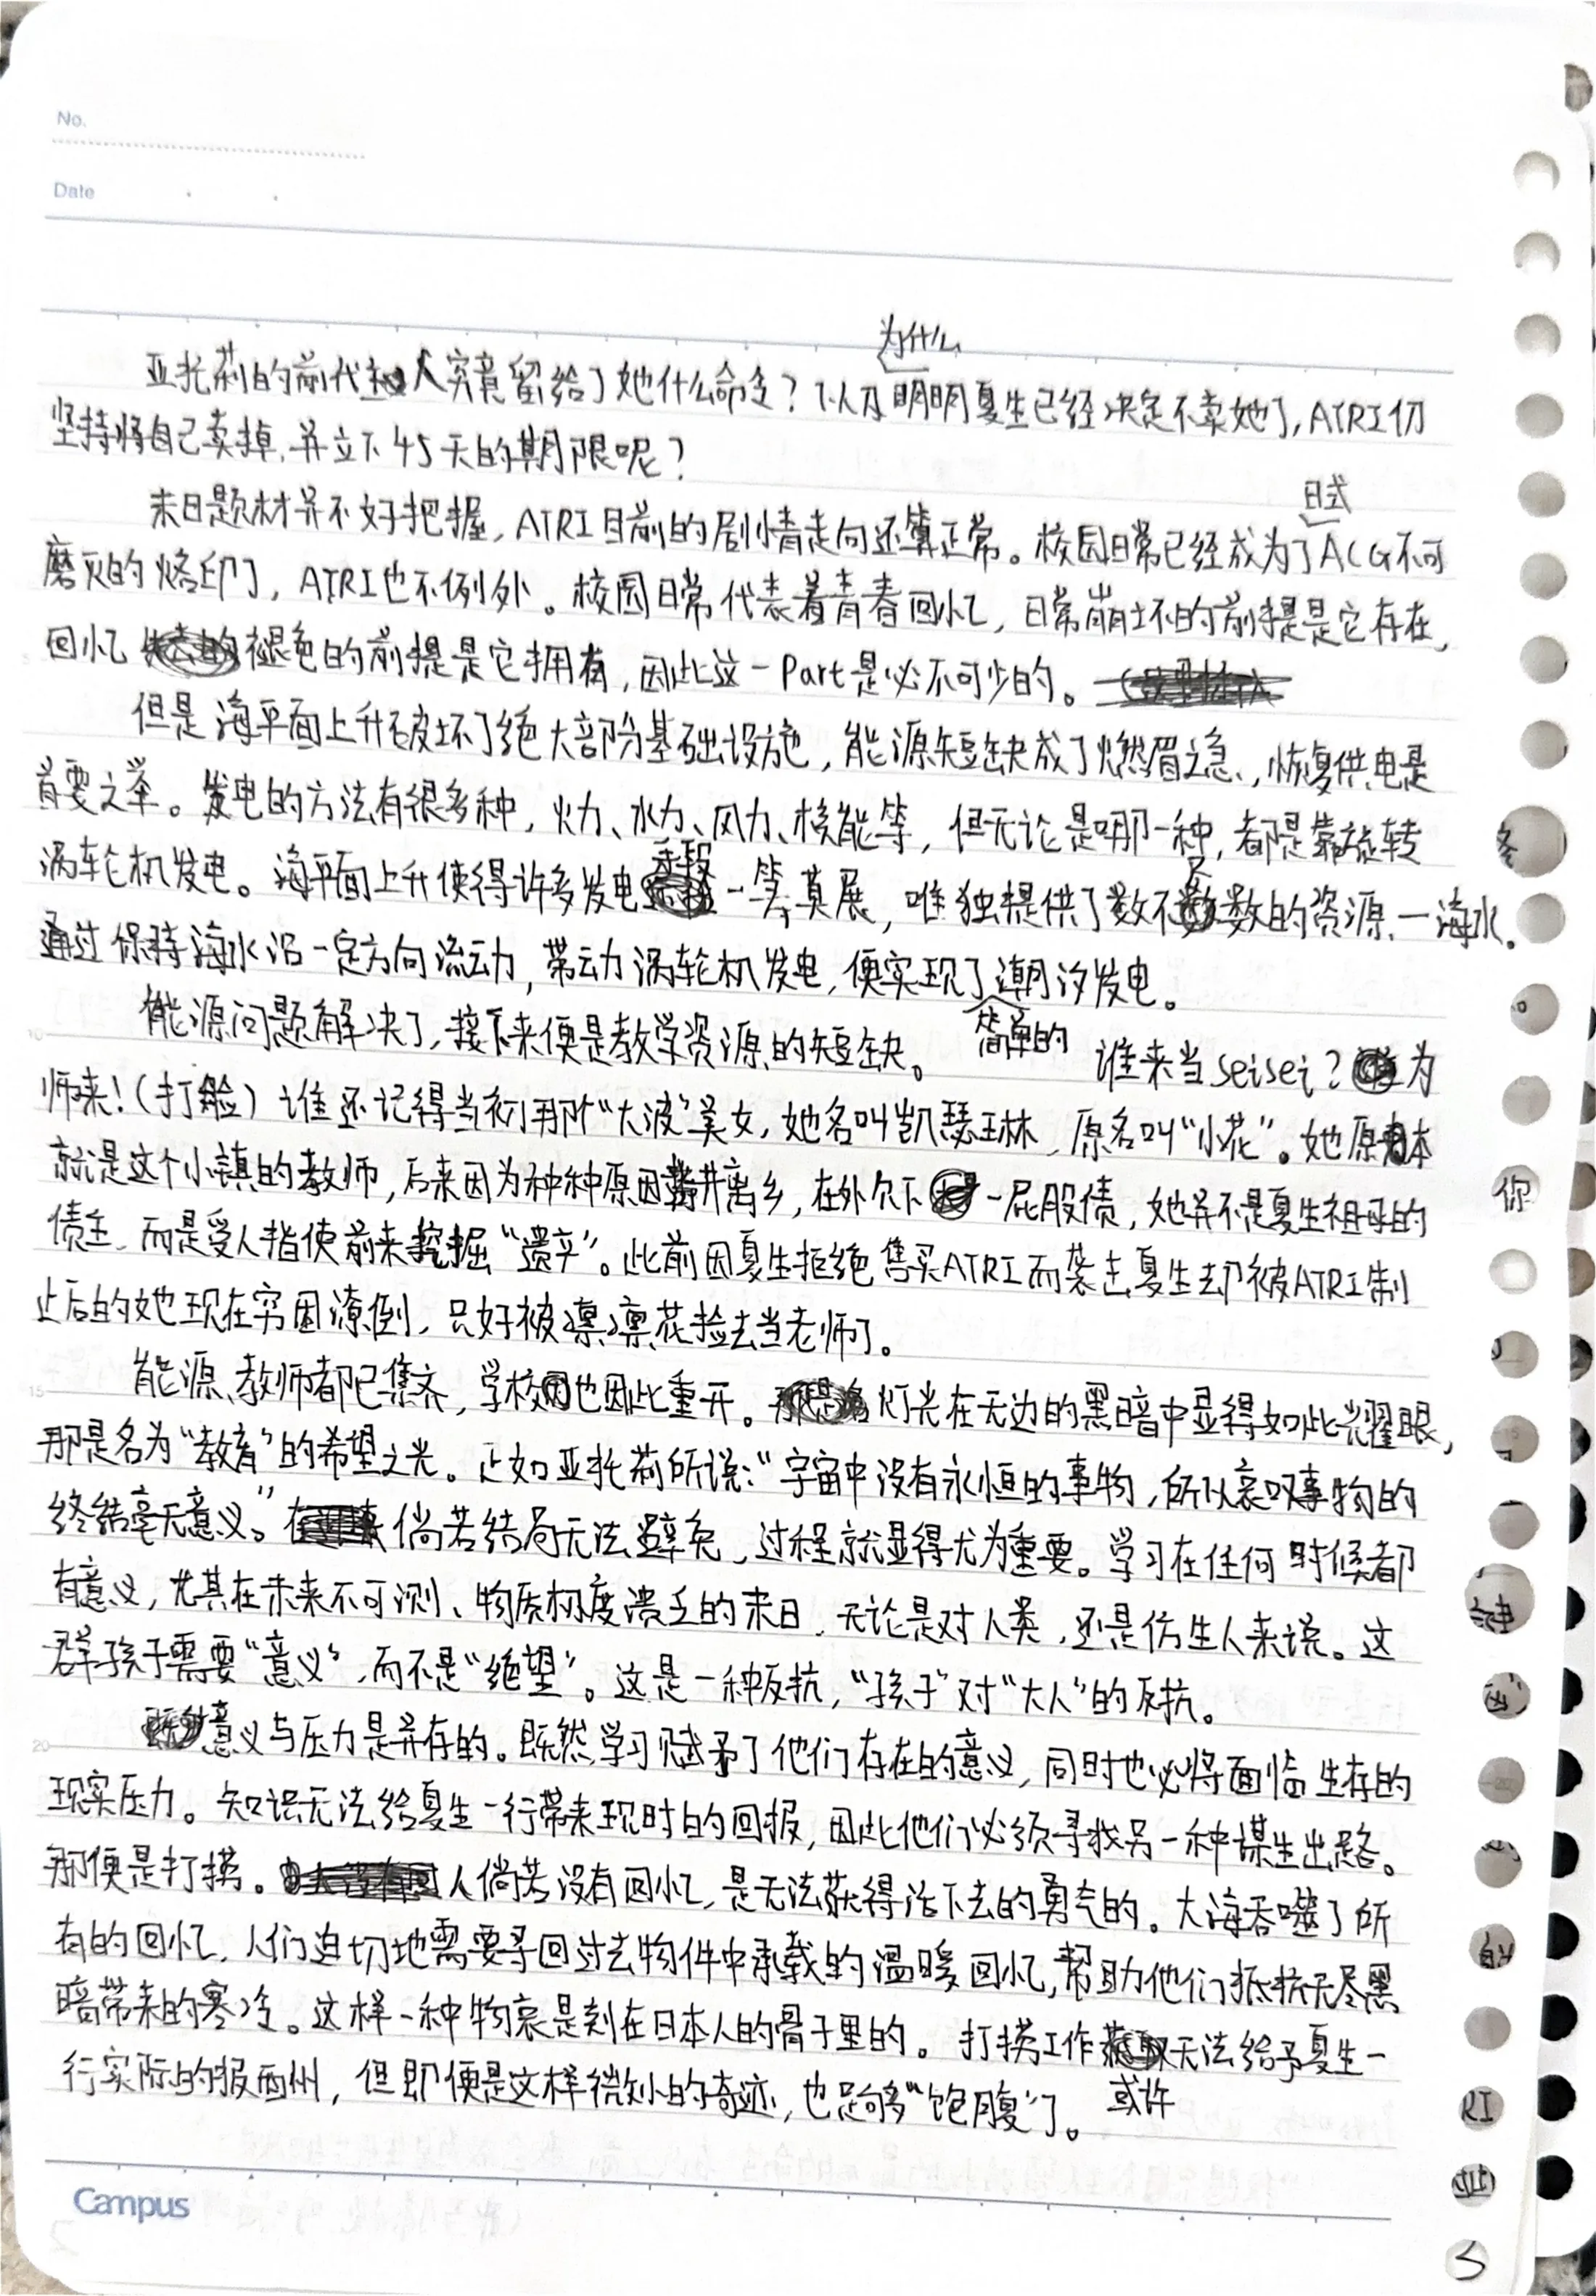 No.
Date
为什么
亚托莉的前代主人究竟留给了她什么命令？以及明明夏生已经决定不卖她了，ATRI仍
坚持将自己卖掉，并立下45天的期限呢？
日式
末日题材并不好把握，ATRI目前的剧情走向还算正常。校园日常已经成为了ACG不可
磨灭的烙印了，ATRI也不例外。校园日常代表着青春回忆，日常崩坏的前提是它存在，
回忆褪色的前提是它拥有，因此这一Part是必不可少的。
但是海平面上升破坏了绝大部分基础设施，能源短缺成了燃眉之急，恢复供电是
首要之举。发电的方法有很多种，火力、水力、风力、核能等，但无论是哪一种，都是靠旋转
涡轮机发电。海平面上升使得许多发电手段一筹莫展，唯独提供了数不尽数的资源—海水。
通过保持海水沿一定方向流动，带动涡轮机发电，便实现了潮汐发电。
简单的
能源问题解决了，接下来便是教学资源的短缺。谁来当seisei？为
师来！（打脸）谁还记得当初那个“大波”美女，她名叫凯瑟琳，原名叫“小花”。她原本
就是这个小镇的教师，后来因为种种原因背井离乡，在外欠下一屁股债，她并不是夏生祖母的
债主，而是受人指使前来挖掘“遗产”。此前因夏生拒绝售卖ATRI而袭击夏生却被ATRI制
止后的她现在穷困潦倒，只好被凛凛花捡去当老师了。
能源、教师都已集齐，学校也因此重开。灯光在无边的黑暗中显得如此耀眼，
那是名为“教育”的希望之光。正如亚托莉所说：“宇宙中没有永恒的事物，所以哀叹事物的
终结毫无意义。”倘若结局无法避免，过程就显得尤为重要。学习在任何时候都
有意义，尤其在未来不可测、物质极度溃乏的末日，无论是对人类，还是仿生人来说。这
群孩子需要“意义”，而不是“绝望”。这是一种反抗，“孩子”对“大人”的反抗。
意义与压力是并存的。既然学习赋予了他们存在的意义，同时也必将面临生存的
现实压力。知识无法给夏生一行带来现时的回报，因此他们必须寻找另一种谋生出路。
那便是打捞。人倘若没有回忆，是无法获得活下去的勇气的。大海吞噬了所
有的回忆，人们迫切地需要寻回过去物件中承载的温暖回忆，帮助他们抵抗无尽黑
暗带来的寒冷。这样一种物哀是刻在日本人的骨子里的。打捞工作无法给予夏生一
行实际的报酬，但即便是这样微小的奇迹，也足够“饱腹”了。
或许
Campus
你
RI